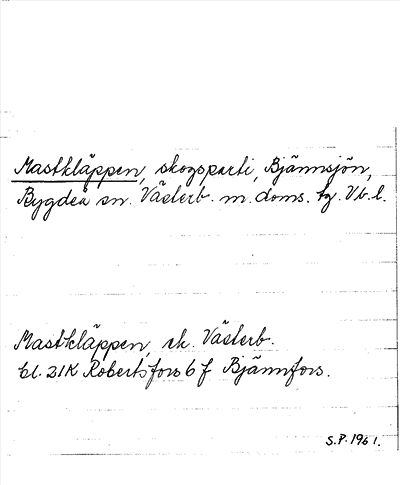 Mastkläppen, skogsparti, Bjännsjön,
Bygdeå sn. Västerb. m. doms. tg. Vb. l.
Mastkläppen, ek. Västerb.
bl. 21K Robertsfors 6 f Bjännfors.
S.P. 1961.